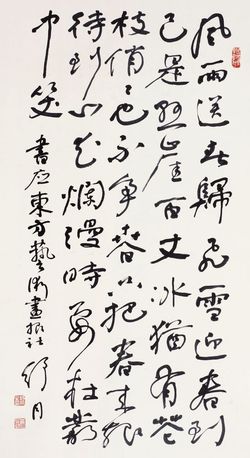 風雨送春歸飛雪迎春到
已是懸崖百丈冰猶有花
枝俏々也不爭春只把春來報
待到山花爛漫時她在叢
中笑
書應東方藝術畫報社